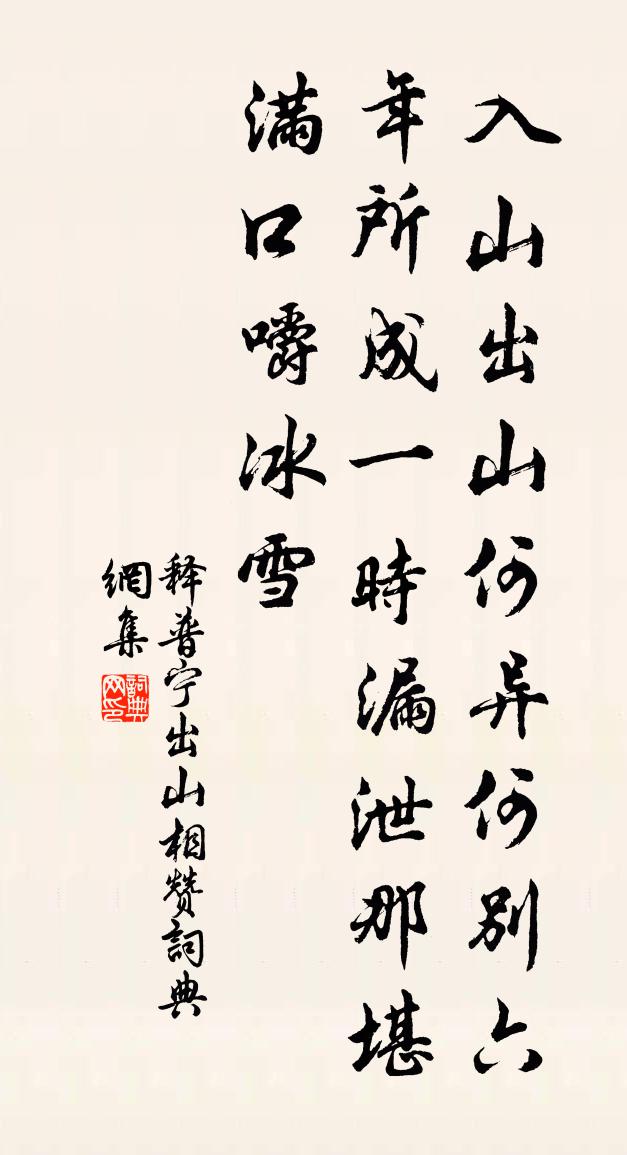 入山出山何异何别六
年所成一時漏泄那堪
满口嚼冰雪
释普宁出山相赞詞典
網集
詞典
网印